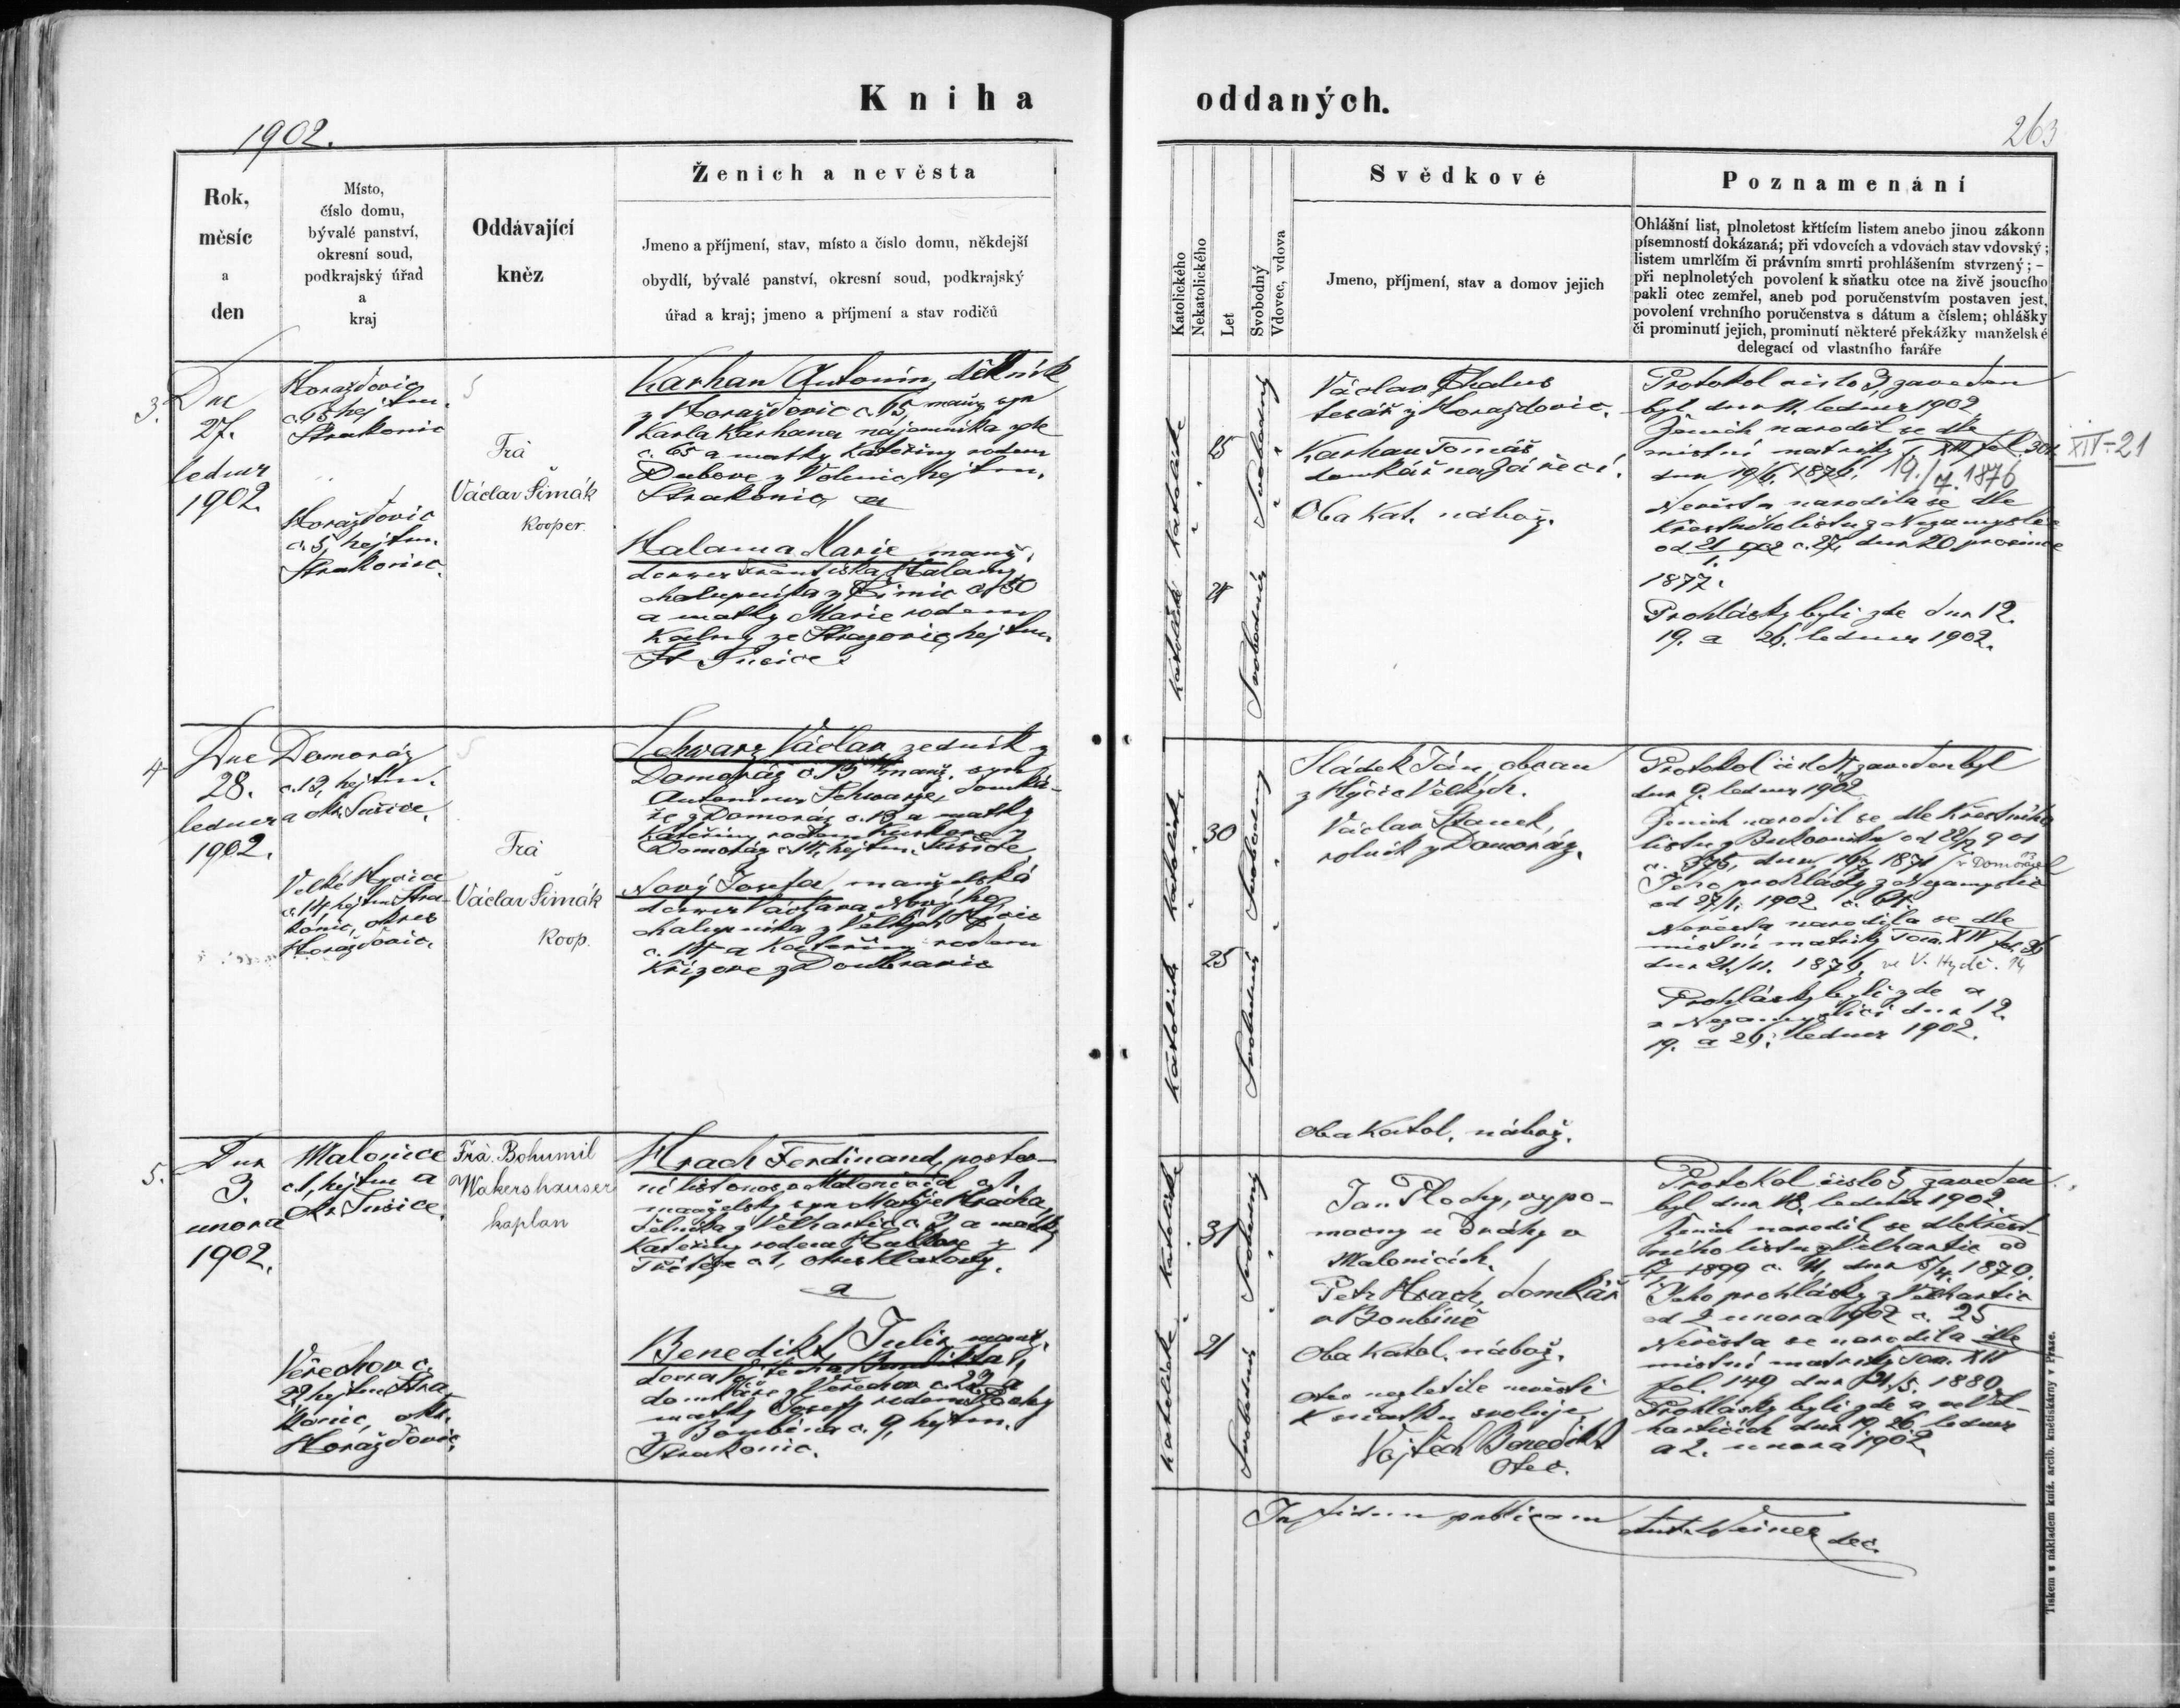 Kniha oddaných.
1902.
263
Rok,
měsíc
a
den
Místo,
číslo domu,
bývalé panství,
okresní soud,
podkrajský úřad
a
kraj
Oddávající
kněz
Ženich a nevěsta
Jmeno a příjmení, stav, místo a číslo domu, někdejší
obydlí, bývalé panství, okresní soud, podkrajský
úřad a kraj; jmeno a příjmení a stav rodičů
Katolického
Nekatolického
Let
Svobodný
Vdovec, vdova
Svědkové
Jmeno, příjmení, stav a domov jejich
Poznamenání
Ohlášní list, plnoletost křtícím listem anebo jinou zákonn
písemností dokázaná; při vdovcích a vdovách stav vdovský;
listem umrlčím či právním smrti prohlášením stvrzený; -
při neplnoletých povolení k sňatku otce na živě jsoucího
pakli otec zemřel, aneb pod poručenstvím postaven jest,
povolení vrchního poručenstva s dátum a číslem; ohlášky
či prominutí jejich, prominutí některé překážky manželské
delegací od vlastního faráře
3.
Dne
27.
ledna
1902.
Horažďovic
c. 65 hejtm.
Strakonic
Horažďovic
c. 5, hejtm.
Strakonic.
Frà
Václav Šimák
Kooper.
Karhan Antonín, dělník
z Horažďovic c. 65, manž. syn
Karla Karhana nájemníka zde
c. 65 a matky Kateřiny rodem
z Volenic, hejtm.
Strakonic, a
Halama Marie, manž.
dcera Františka Halamy,
chalupníka z Čimic č. 30
a matky Marie rodem
ze Strazovic, hejtm.
Sušice.
katolické
katolické
25
24
Svobodný
Svobodná
Václav
tesář z Horažďovic.
Karhan Tomáš
domkář na Zářečí.
Oba kat. nábož.
Protokol číslo 3, zaveden
byl dne 11. ledna 1902
Ženich narodil se dle
místní matriky
dne 19/6. 1876. 19./7. 1876
XIV-21
Nevěsta narodila se dle
křestního listu z Nezamyslic
od 21/1. 902 c. 27. dne 20 prosince
1877.
Prohlášky byli zde dne 12.
19. a 26. ledna 1902.
4.
Dne
28.
ledna
1902.
Domoráz
c. 13, hejtm.
a okr. Sušice.
Velké Hydčice
c. 14 hejtm. Stra-
konic, okres
Horažďovic.
Frà
Václav Šimák
Koop.
Schwarz Václav, zedník z
Domoráz č. 13 manž. syn
Antonína Schwarze, domká-
ře z Domoráz c. 13 a matky
Kateřiny rodem
Domoráz c. 14, hejtm. Sušice,
Nový Josefa, manželská
dcera Václava Nového
chalupníka z Velkých Hydčic
c. 14 a Kateřiny rodem
Křížove z Doubravic
katolické
katolické
30
25
Svobodný
Svobodná
Sládek Ján, občan
z Hydčic Velkých.
Václav Stanek,
rolník z Domoráz.
Oba katol. nábož.
Protokol čísl 4, zaveden byl
dne 9. ledna 1902
Ženich narodil se dle křestního
listu z Bukovníku
1871 v Domorázi
Jeho prohlášky z Nezamyslic
od 27/1. 1902
Nevěsta narodila se dle
místní matriky Tom. XIV fol.
dne 21./11. 1876, ve V. Hydč. 14
Prohlášky byli zde a
v Nezamyslicí dne 12.
19. a 26. ledna 1902.
5.
Dne
3.
unora
1902.
Malonice
c. 1, hejtm a
okr. Sušice.
Věřechov c.
22 hejtm Stra-
konic, okr.
Horažďovic.
Frà. Bohumil
Wakershauser
kaplan
Hrach Ferdinand, poštov-
ní listonoš v Malonicích c. 1,
manželský syn Matěje Hracha,
z Velhartic c. 2 a matky
Kateřiny rodem
c. 1, okres Klatovy.
a
Benedikt Julie, manž.
dcera Vojtěcha Benedikta,
domkáře z Věřechov c. 22 a
matky Josefy rodem
z Boubína c. 9, hejtm.
Strakonic.
katolické
katolické
31
21
Svobodný
Svobodná
Jan Plochy, vypo-
mocny u Dráhy v
Malonicích.
Petr Hrach, domkář
v Boubíně
Oba katol. nábož.
Otec nezletilé nevěsti
k sňatku svoluje
Vojtěch Benedikt
Otec.
Protokol číslo 5 zaveden
byl dne 18. ledna 1902.
Ženich narodil se dle křest-
ního listu z Velhartic od
1899 c. 11, dne 5/4 1870.
Jeho prohlášky z Velhartic
od 2 unora 1902 c. 25
Nevěsta se narodila dle
místní matriky Tom. XIV
fol. 149 dne 21./5. 1880.
Prohlášky byli zde a ve Vel-
harticích dne 19, 26, ledna
a 2. unora 1902.
In fidem publicam Ant. Weiner dec.
Tiskem a nákladem kníž. arcib. knětiskárny v Praze.